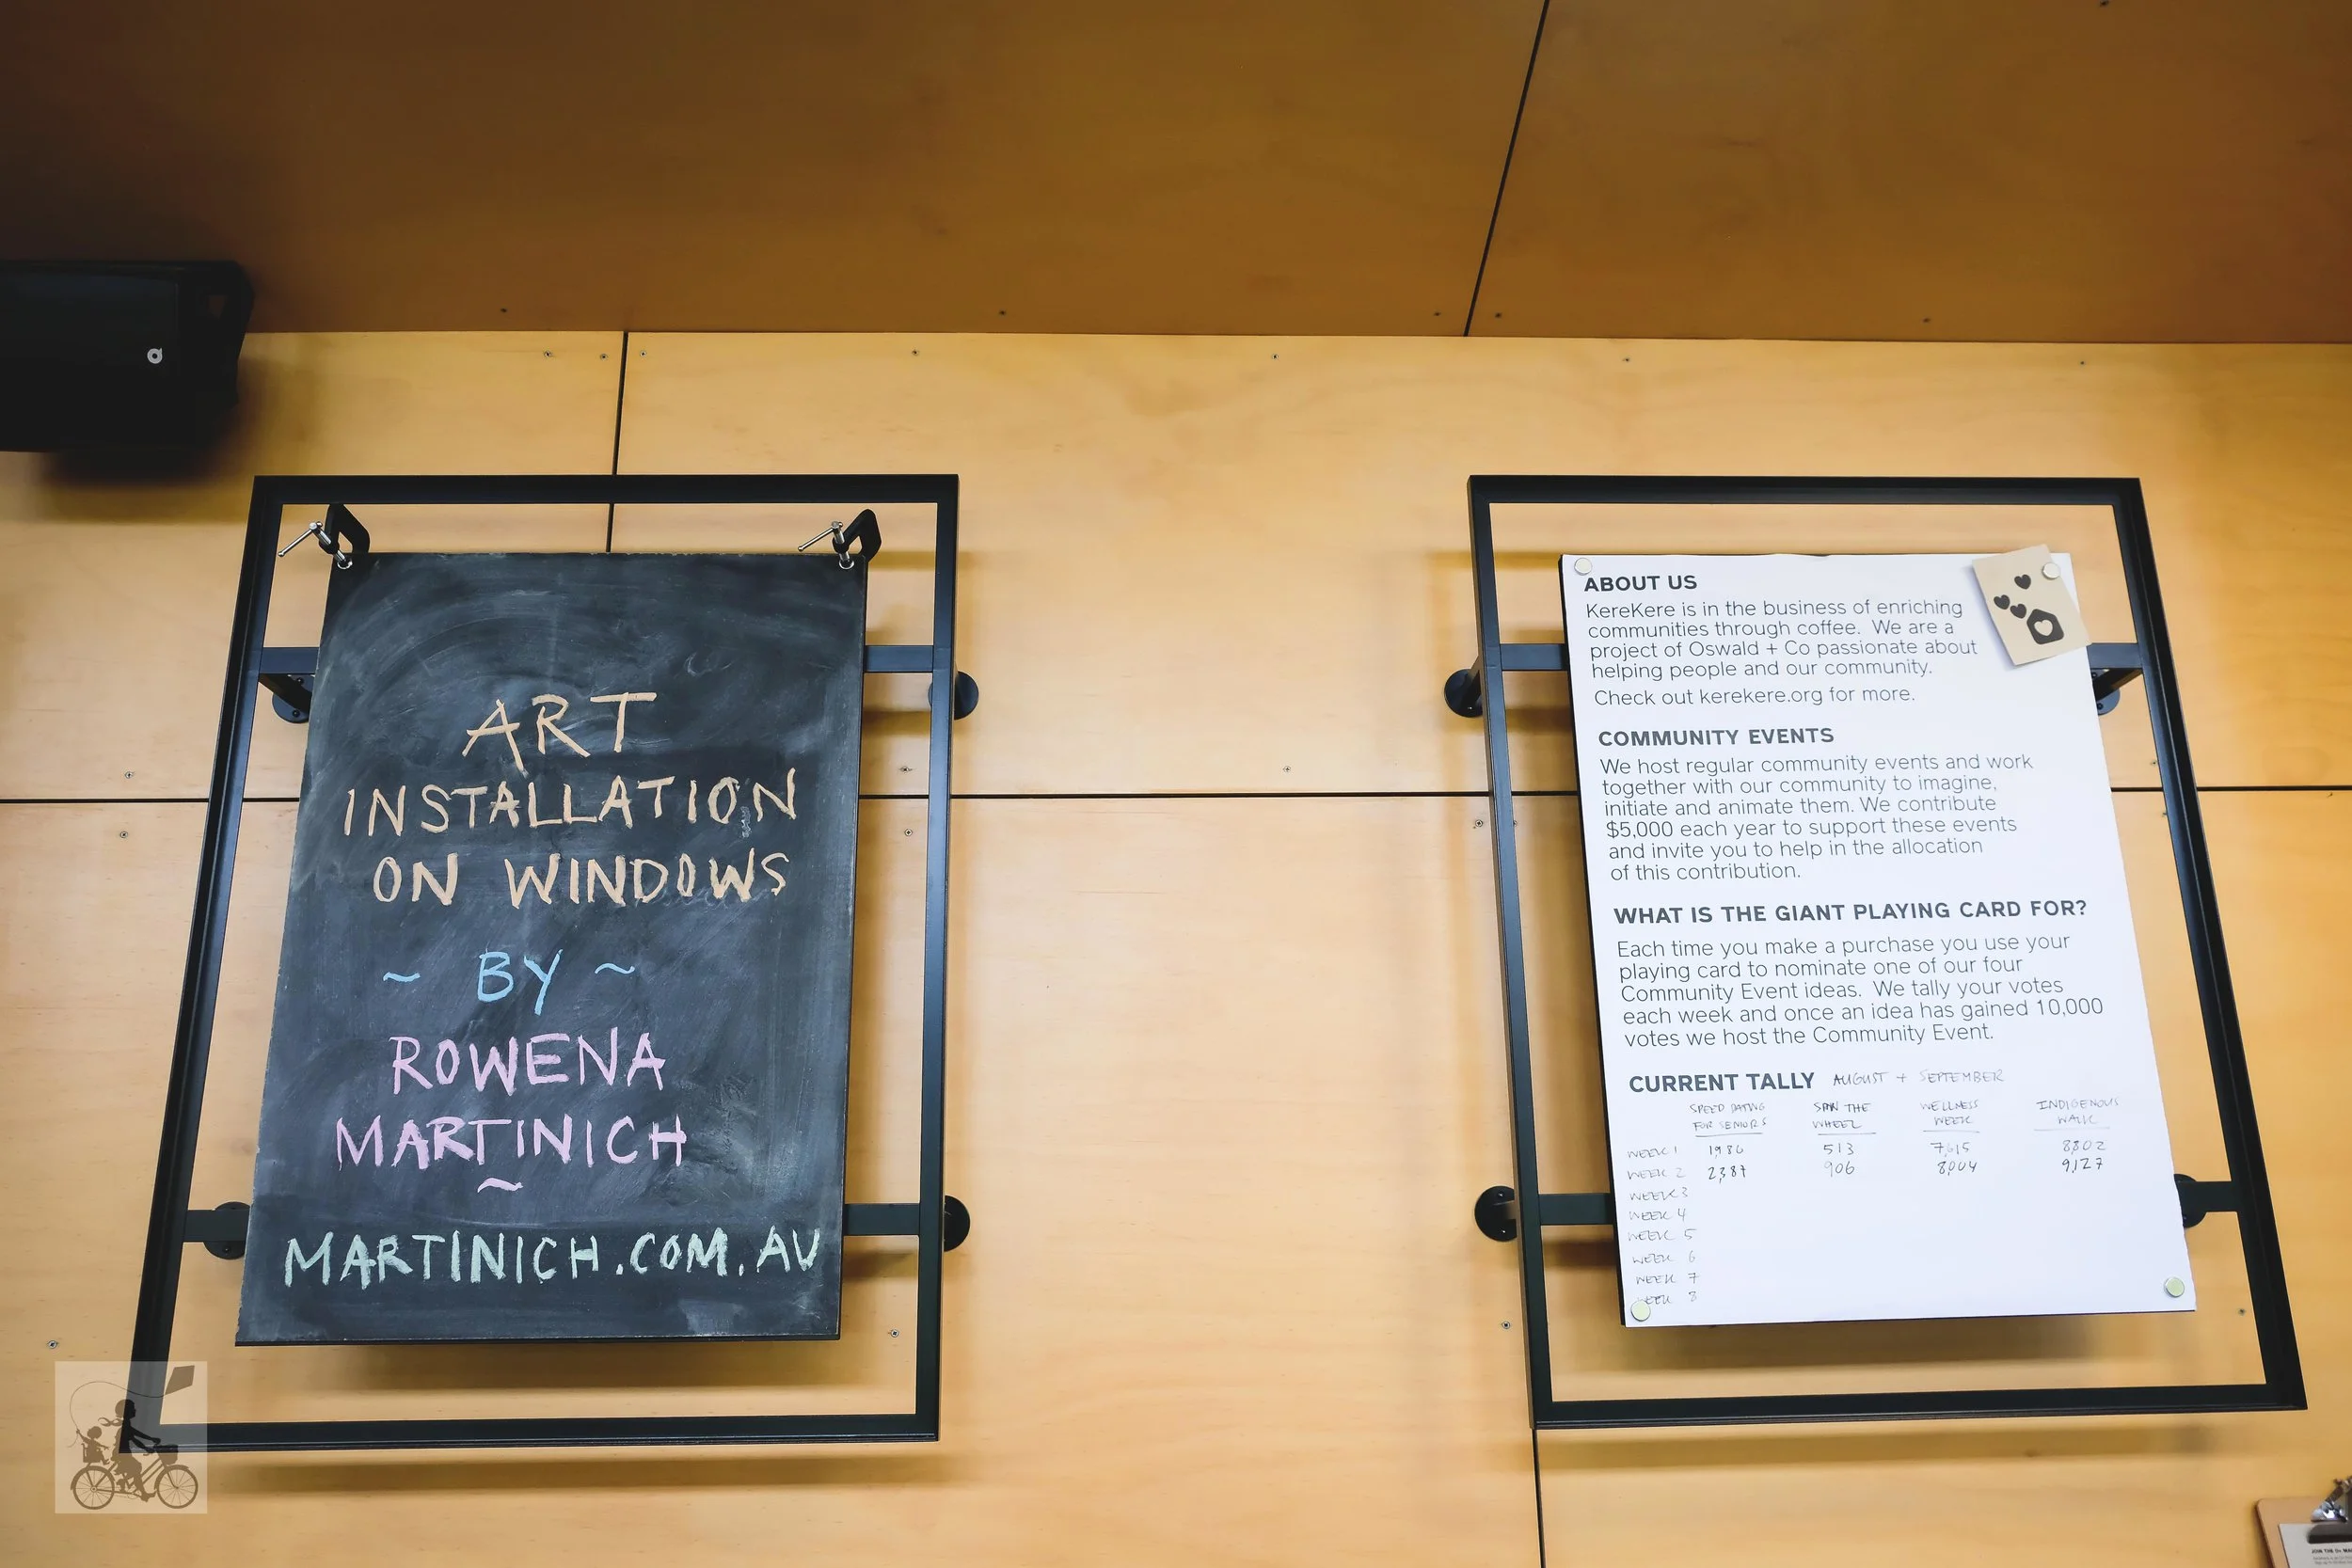 ART
INSTALLATION
ON WINDOWS
~ BY ~
ROWENA
MARTINICH
~
MARTINICH.COM.AU
ABOUT US
KereKere is in the business of enriching
communities through coffee. We are a
project of Oswald + Co passionate about
helping people and our community.
Check out kerekere.org for more.
COMMUNITY EVENTS
We host regular community events and work
together with our community to imagine,
initiate and animate them. We contribute
$5,000 each year to support these events
and invite you to help in the allocation
of this contribution.
WHAT IS THE GIANT PLAYING CARD FOR?
Each time you make a purchase you use your
playing card to nominate one of our four
Community Event ideas. We tally your votes
each week and once an idea has gained 10,000
votes we host the Community Event.
CURRENT TALLY AUGUST + SEPTEMBER
SPEED DATING SPIN THE WELLNESS INDIGENOUS
FOR SENIORS WHEEL WEEK WALK
WEEK 1 1,986 513 7,615 8,802
WEEK 2 2,387 906 8,004 9,127
WEEK 3
WEEK 4
WEEK 5
WEEK 6
WEEK 7
WEEK 8